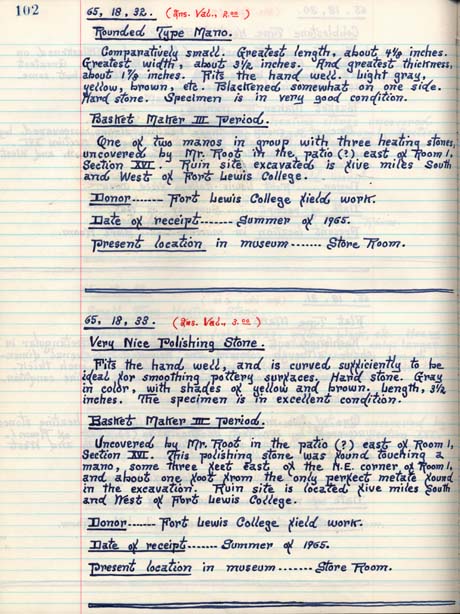 102
65, 18, 32. (Ins. Val., 2.00)
Rounded Type Mano.
Comparatively small. Greatest length, about 4 4/8 inches.
Greatest width, about 3 1/2 inches. And greatest thickness,
about 1 7/8 inches. Fits the hand well. Light gray,
yellow, brown, etc. Blackened somewhat on one side.
Hard stone. Specimen is in very good condition.
Basket Maker III Period.
One of two manos in group with three heating stones,
uncovered by Mr. Root in the patio (?) east of Room 1,
Section XVI. Ruin site excavated is five miles South
and West of Fort Lewis College.
Donor------- Fort Lewis College field work.
Date of receipt------- Summer of 1965.
Present location in museum------- Store Room.
65, 18, 33. (Ins. Val., 3.00)
Very Nice Polishing Stone.
Fits the hand well, and is curved sufficiently to be
ideal for smoothing pottery surfaces. Hard stone. Gray
in color, with shades of yellow and brown. Length, 3 1/2
inches. The specimen is in excellent condition.
Basket Maker III Period.
Uncovered by Mr. Root in the patio (?) east of Room 1,
Section XVI. This polishing stone was found touching a
mano, some three feet east of the N.E. corner of Room 1,
and about one foot from the only perfect metate found
in the excavation. Ruin site is located five miles South
and West of Fort Lewis College.
Donor------- Fort Lewis College field work.
Date of receipt------- Summer of 1965.
Present location in museum------- Store Room.